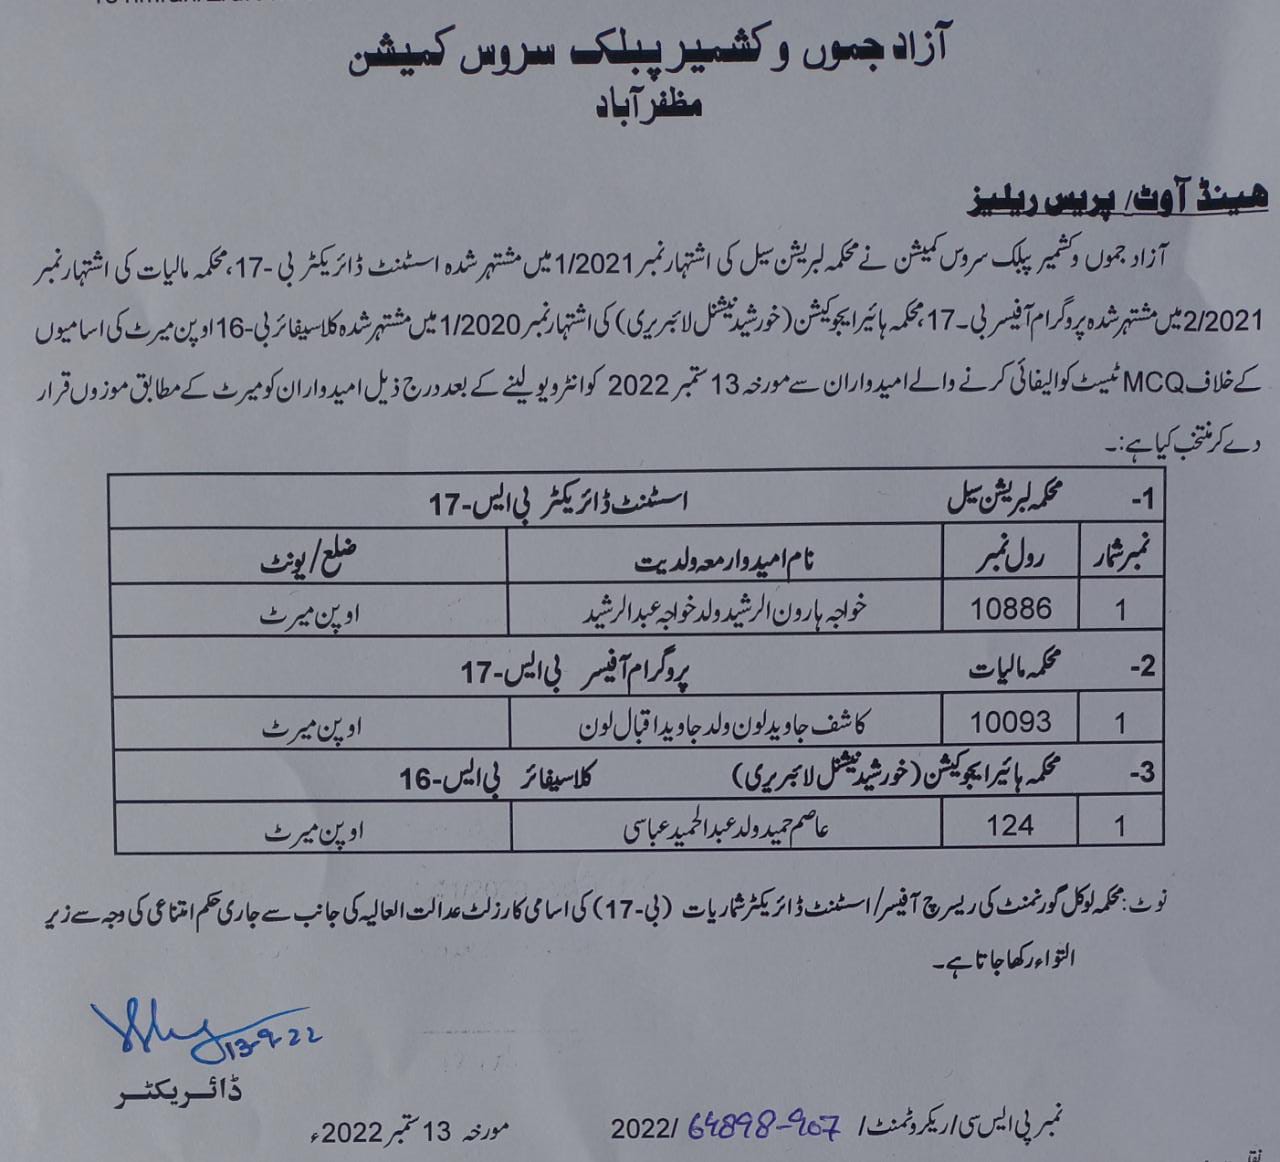 آزاد جموں و کشمیر پبلک سروس کمیشن
مظفر آباد
ہینڈ آوٹ/ پریس ریلیز
آزاد جموں و کشمیر پبلک سروس کمیشن نے محکمہ لبریشن سیل کی اشتہار نمبر 1/2021 میں مشتہر شدہ اسسٹنٹ ڈائریکٹر بی -17، محکمہ مالیات کی اشتہار نمبر
2/2021 میں مشتہر شدہ پروگرام آفیسر بی۔17، محکمہ ہائیر ایجوکیشن (خورشید نیشنل لائبریری) کی اشتہار نمبر 1/2020 میں مشتہر شدہ کلاسیفائر بی-16 اوپن میرٹ کی اسامیوں
کے خلاف MCQ ٹیسٹ کوالیفائی کرنے والے امیدواران سے مورخہ 13 ستمبر 2022 کو انٹرویو لینے کے بعد درج ذیل امیدواران کو میرٹ کے مطابق موزوں قرار
دے کر منتخب کیا ہے:۔
1- محکمہ لبریشن سیل اسسٹنٹ ڈائریکٹر بی ایس-17
نمبر شمار رول نمبر نام امیدوار معہ ولدیت ضلع/یونٹ
1 10886 خواجہ ہارون الرشید ولد خواجہ عبدالرشید اوپن میرٹ
2- محکمہ مالیات پروگرام آفیسر بی ایس-17
1 10093 کاشف جاوید لون ولد جاوید اقبال لون اوپن میرٹ
3- محکمہ ہائیر ایجوکیشن (خورشید نیشنل لائبریری) کلاسیفائر بی ایس-16
1 124 عاصم حمید ولد عبدالحمید عباسی اوپن میرٹ
نوٹ: محکمہ لوکل گورنمنٹ کی ریسرچ آفیسر/اسسٹنٹ ڈائریکٹر شماریات (بی-17) کی اسامی کا رزلٹ عدالت العالیہ کی جانب سے جاری حکم امتناعی کی وجہ سے زیر
التواء رکھا جاتا ہے۔
13-9-22
ڈائریکٹر
نمبر پی ایس سی/ریکروٹمنٹ/ 64898-907 /2022 مورخہ 13 ستمبر 2022ء